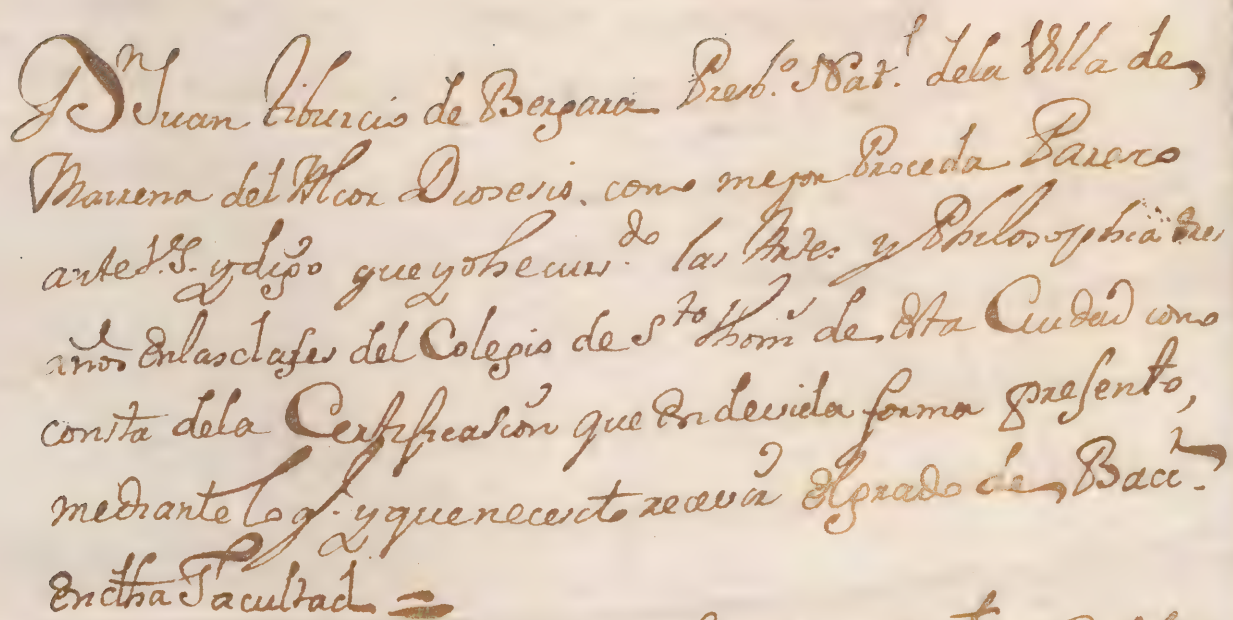 Dn Juan tiburcio de Bergara Presbo. Natl. dela Villa de
Mairena del Alcor Diosesis. como mejor Proceda Paresco
ante V.S. y digo que yo he cursdo. las Artes y Philosophia tres
años en las clases del Colegio de Sto thom de esta Ciudad como
consta dela Certificasion que en devida forma presento,
mediante lo q. y que necesito recevir el grado de Bacr.
en dha Facultad =